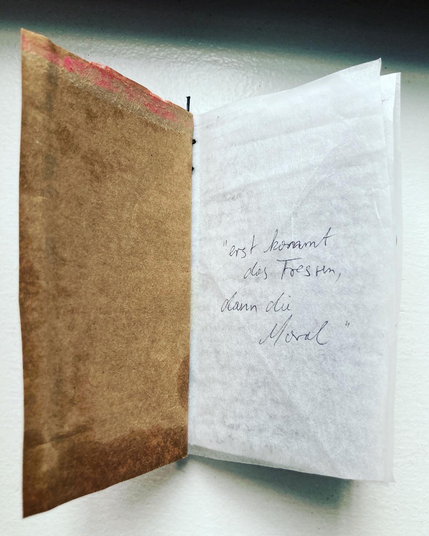 "erst kommt
das Fressen,
dann die
Moral"